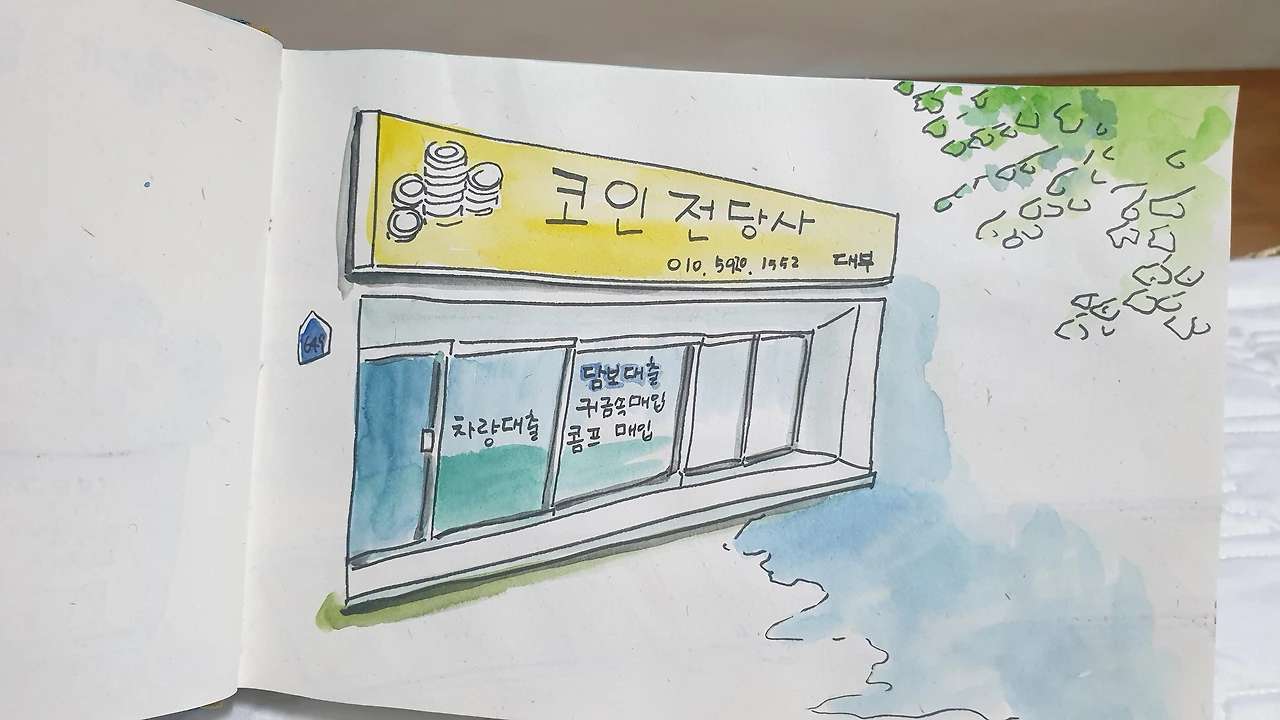 코인 전당사
010. 5920. 1552 대부
649
차량대출
담보대출
귀금속매입
콤프 매입